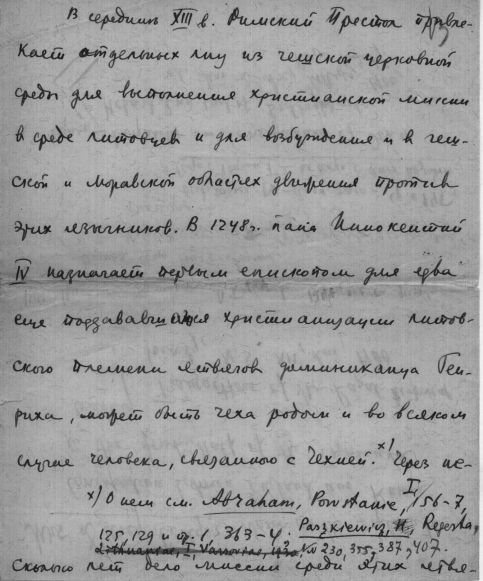 В середине XIII в. Римский Престол привле-
кает отдельных лиц из чешской церковной
среды для выполнения христианской миссии
в среде литовцев и для возбуждения и в чеш-
ской и моравской областях движения против
этих язычников. В 1248 г. папа Иннокентий
IV назначает первым епископом для едва
еще поддававшихся христианизации литов-
ского племени ятвягов доминиканца Ген-
риха, может быть чеха родом и во всяком
случае человека, связанного с Чехией. x) Через не-
x) О нем см. Abraham, Powstanie, I, 156-7,
125, 129 и пр. 1, 363-4. Paszkiewicz, Regesta,
Lithuaniae, I, Varsoviae, 1930 № 230, 355, 387, 407.
сколько лет дело миссии среди этих ятвя-